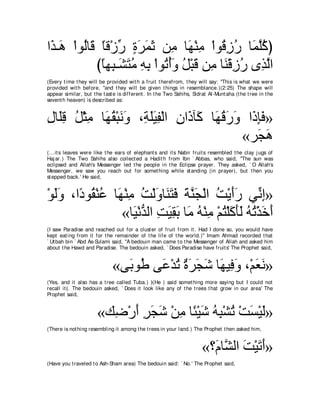 (كُلَّمَا رُزِقُواْ مِنْهَا مِن ثَمَرَةٍ رِّزْقاً قَالُواْ هَـذَا
الَّذِى رُزِقْنَا مِن قَبْلُ وَأُتُواْ بِهِ مُتَشَـبِهاً)
(Every time they will be provided with a fruit therefrom, they will say: "This is what we were
provided with before, "and they will be given things in resemblance.)(2:25) The shape will
appear similar, but the taste is different. In the Two Sahihs, Sidrat Al-Muntaha (the tree in the
seventh heaven) is described as:
«فَإِذَا وَرَقُهَا كَآذَانِ الْفِيَلَةِ، وَنَبْقُهَا مِثْلُ قِلَالِ
هَجَرَ»
(...its leaves were like the ears of elephants and its Nabir fruits resembled the clay jugs of
Hajar.) The Two Sahihs also collected a Hadith from Ibn `Abbas, who said, "The sun was
eclipsed and Allah's Messenger led the people in the Eclipse prayer. They asked, `O Allah's
Messenger, we saw you reach out for something while standing (in prayer), but then you
stepped back.' He said,
«إِنِّي رَأَيْتُ الْجَنَّةَ فَتَنَاوَلْتُ مِنْهَا عُنْقُودًا، وَلَوْ
أَخَذْتُهُ لَأَكَلْتُمْ مِنْهُ مَا بَقِيَتِ الدُّنْيَا»
(I saw Paradise and reached out for a cluster of fruit from it. Had I done so, you would have
kept eating from it for the remainder of the life of the world.)" Imam Ahmad recorded that
`Utbah bin `Abd As-Sulami said, "A bedouin man came to the Messenger of Allah and asked him
about the Hawd and Paradise. The bedouin asked, `Does Paradise have fruits' The Prophet said,
«نَعَمْ، وَفِيهَا شَجَرَةٌ تُدْعَى طُوبَى»
(Yes, and it also has a tree called Tuba.) )(He ) said something more saying but I could not
recall it). The bedouin asked, `Does it look like any of the trees that grow in our area' The
Prophet said,
«لَيْسَتْ تُشْبِهُ شَيْئًا مِنْ شَجَرِ أَرْضِكَ»
(There is nothing resembling it among the trees in your land.) The Prophet then asked him,
«أَتَيْتَ الشَّامَ؟»
(Have you traveled to Ash-Sham area) The bedouin said: `No.' The Prophet said,